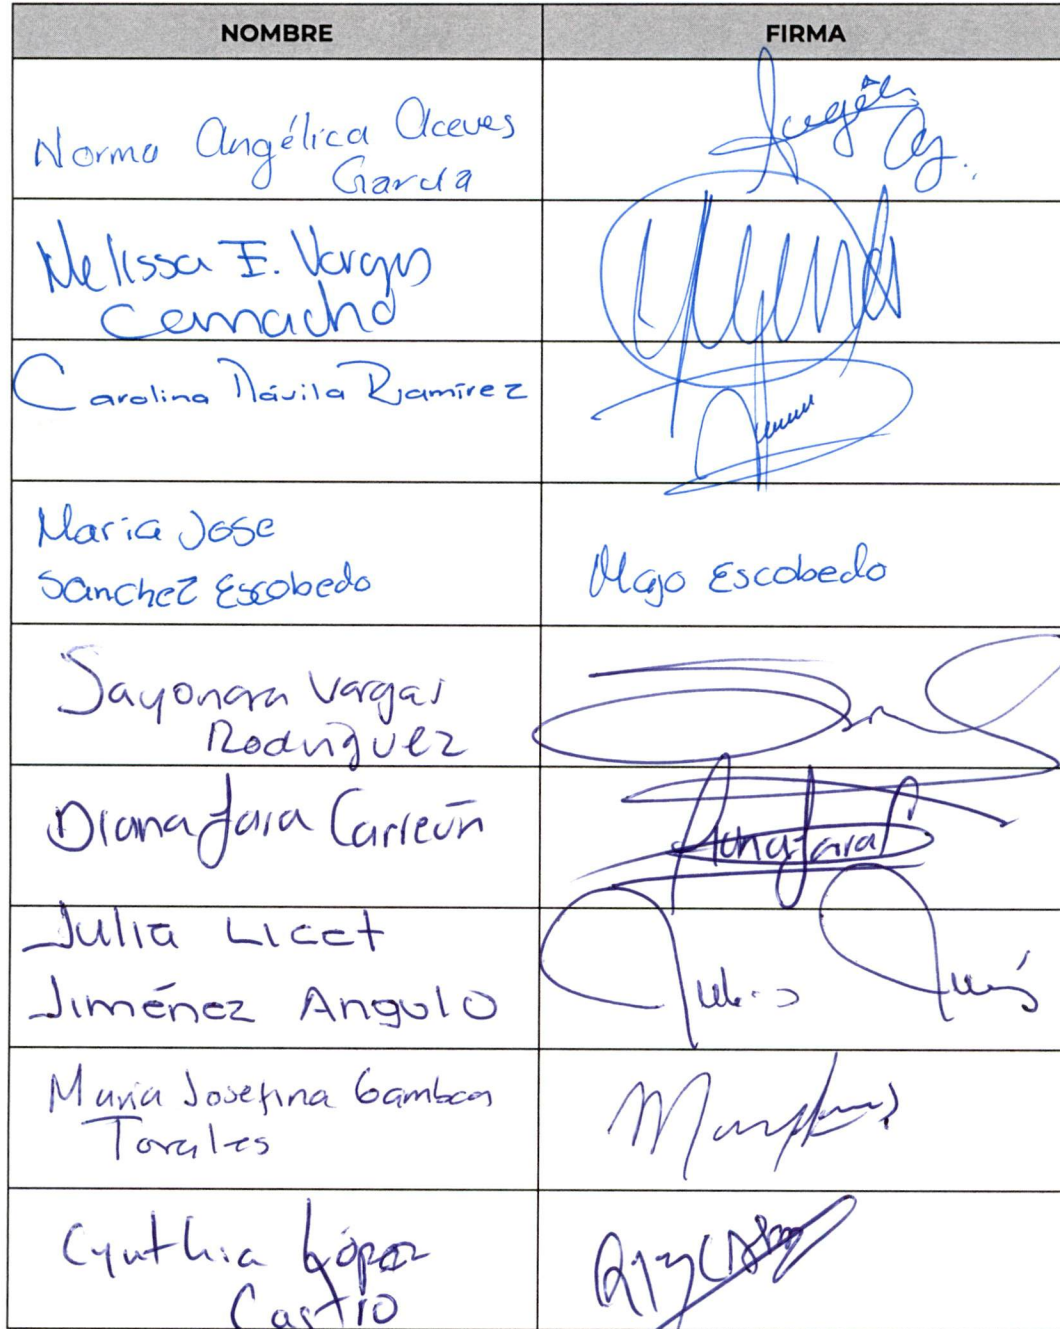 NOMBRE FIRMA
Norma Angélica Aceves
García
Melissa E. Vargas
Camacho
Carolina Dávila Ramírez
Maria Jose
Sanchez Escobedo
Majo Escobedo
Sayonara Vargas
Rodríguez
Diana Jara Carreón
Julia Licet
Jiménez Angulo
María Josefina Gamboa
Torales
Cynthia López
Castro